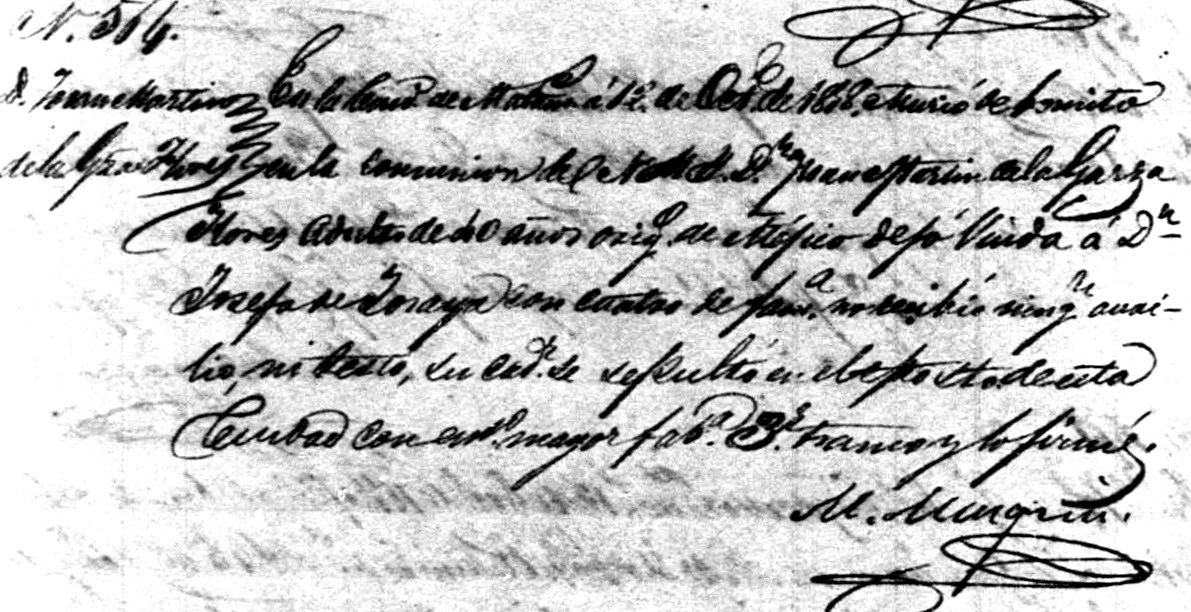 N. 564.
D. Juan Martin En la Ciud. de Matam.s á 12. de Oct.e de 1868. Murió de bomito
de la Gza Flores en la comunion de N. M. D.n Juan Martin de la Garza
Flores adulto de 40 años orig. de Mégico dejó Viuda á D.a
Josefa de con cuatro de fam.a no recibió ning.n auci-
lio, ni testó, su cad.r se sepultó en el de esta
Ciudad con ent.o mayor fab.a 3 y lo firmé.
M.